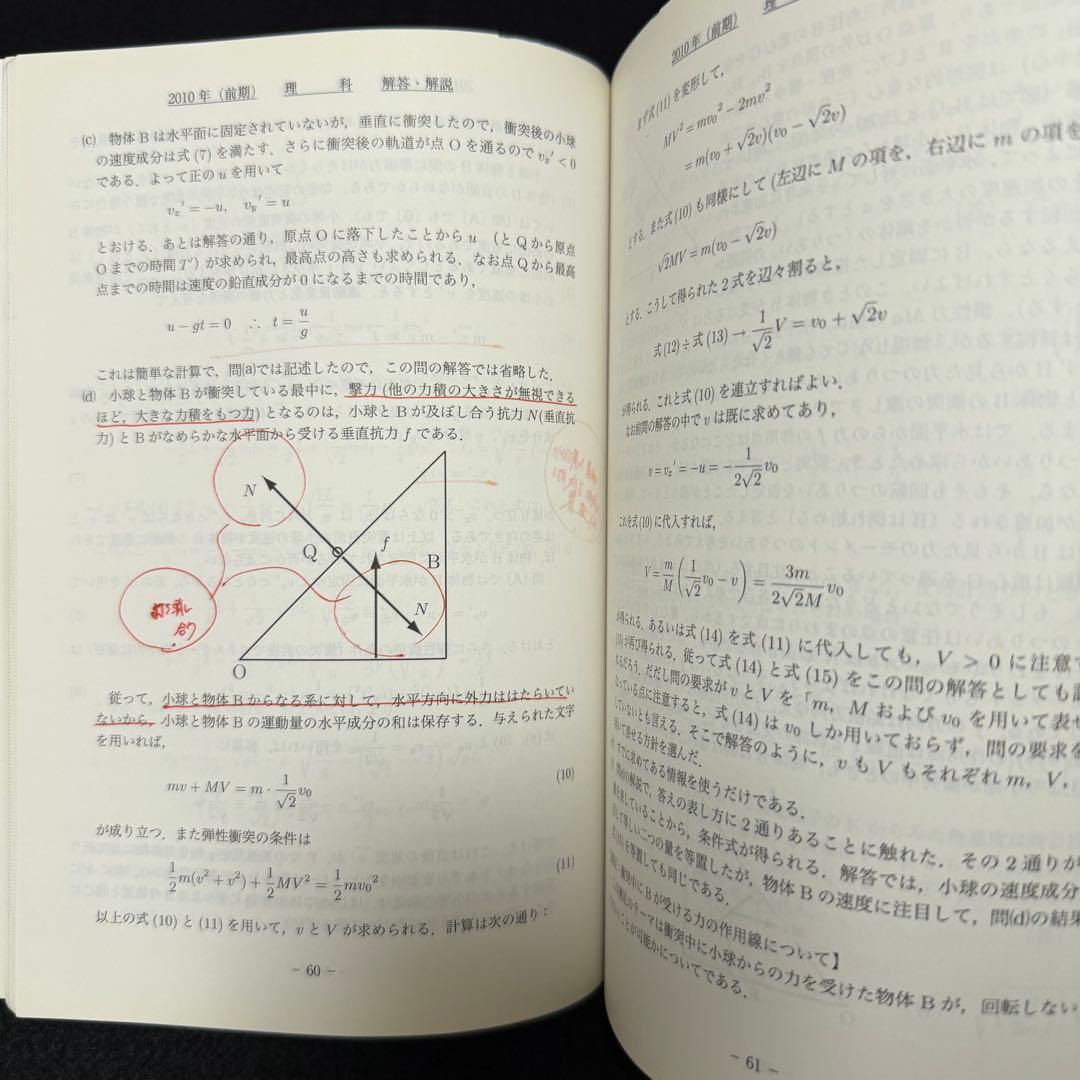 2010年（前期） 理 科 解答・解説
(c) 物体Bは水平面に固定されていないが，垂直に衝突したので，衝突後の小球
の速度成分は式 (7) を満たす．さらに衝突後の軌道が点 O を通るので vx′ < 0
である．よって正の u を用いて
vx′ = −u, vy′ = u
とおける．あとは解答の通り，原点 O に落下したことから u （と Q から原点
O までの時間 T′）が求められ，最高点の高さも求められる．なお点 Q から最高
点までの時間は速度の鉛直成分が 0 になるまでの時間であり，
u − gt = 0 ∴ t = u/g
これは簡単な計算で，問(a)では記述したので，この問の解答では省略した．
(d) 小球と物体 B が衝突している最中に，撃力 (他の力積の大きさが無視できる
ほど，大きな力積をもつ力) となるのは，小球と B が及ぼし合う抗力 N(垂直抗
力) と B がなめらかな水平面から受ける垂直抗力 f である．
N
Q
f
B
N
O
打ち消し
合う
従って，小球と物体 B からなる系に対して，水平方向に外力ははたらいてい
ないから，小球と物体 B の運動量の水平成分の和は保存する．与えられた文字
を用いれば，
mv + MV = m · 1/√2 v0 (10)
が成り立つ．また弾性衝突の条件は
1/2 m(v² + v²) + 1/2 MV² = 1/2 mv0² (11)
以上の式 (10) と (11) を用いて，v と V が求められる．計算は次の通り：
− 60 −
2010年（前期） 理
まず式(11)を変形して，
MV² = mv0² − 2mv²
= m(v0 + √2v)(v0 − √2v)
とする．また式(10)も同様にして (左辺に M の項を，右辺に m の項を
√2MV = m(v0 − √2v)
とする．こうして得られた2式を辺々割ると，
式(12)÷式(13) → 1/√2 V = v0 + √2v
が得られる．これと式(10)を連立すればよい．
なお前問の解答の中で v は既に求めてあり，
v = vx′ = −u = − 1/2√2 v0
これを式(10)に代入すれば，
V = m/M (1/√2 v0 − v) = 3m/2√2M v0
が得られる．あるいは式 (14) を式 (11) に代入しても，V > 0 に注意
(15)が再び得られる．従って式 (14) と式 (15) をこの問の解答としても
れるだろう．だだし問の要求が v と V を「m，M および v0 を用いて表せ
なっている点に注意すると，式 (14) は v0 しか用いておらず，問の要求を
していないとも言える．そこで解答のように，v も V もそれぞれ m，V，
用いて表せる方針を選んだ．
すでに求めてある情報を使うだけである．
問(d)の解説で，答えの表し方に2通りあることに触れた．その2通りが
を表していることから，条件式が得られる．解答では，小球の速度成分
して等しい二つの量を等置したが，物体 B の速度に注目して，問(d)の結果
を等置しても同じである．
衝突中に B が受ける力の作用線について】
のテーマは衝突中に小球からの力を受けた物体 B が，回転しない
ことが可能かについてである．
− 61 −